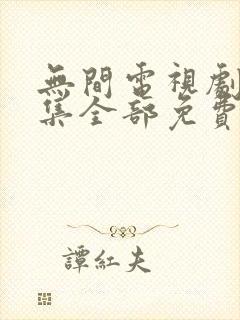 無間電視劇
集全部免費
譚紅夫